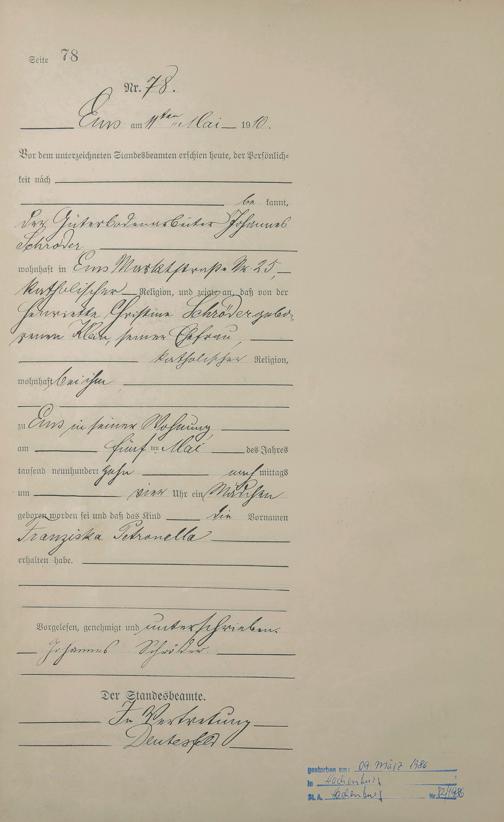 Seite 78
Nr. 78.
Ems am 11ten Mai 1910.
Vor dem unterzeichneten Standesbeamten erschien heute, der Persönlich-
keit nach
be kannt,
der Güterbodenarbeiter Johannes
Schröder
wohnhaft in Ems Marktstraße Nr. 25,
katholischer Religion, und zeigte an, daß von der
Henriette Christine Schröder gebo-
renen Klein, seiner Ehefrau,
katholischer Religion,
wohnhaft bei ihm
zu Ems in seiner Wohnung
am fünf ten Mai des Jahres
tausend neunhundert zehn nach mittags
um vier Uhr ein Mädchen
geboren worden sei und daß das Kind die Vornamen
Franziska Petronella
erhalten habe.
Vorgelesen, genehmigt und unterschrieben.
Johannes Schröder
Der Standesbeamte.
In Vertretung
gestorben am: 09. März 1986
in Hachenburg
St. A. Hachenburg Nr. 32/1986